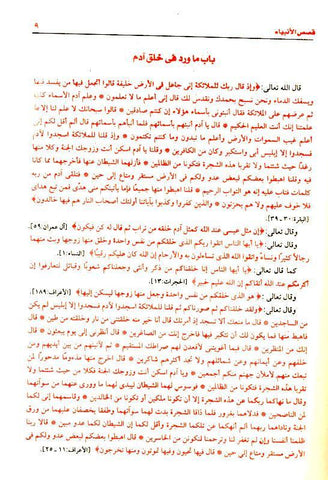 ٩ قصص الأنبياء
باب ما ورد فى خلق آدم
قال الله تعالى: ﴿وإذ قال ربك للملائكة إنى جاعل فى الأرض خليفة قالوا أتجعل فيها من يفسد فيها
ويسفك الدماء ونحن نسبح بحمدك ونقدس لك قال إنى أعلم ما لا تعلمون * وعلم آدم الأسماء كلها
ثم عرضهم على الملائكة فقال أنبئونى بأسماء هؤلاء إن كنتم صادقين * قالوا سبحانك لا علم لنا إلا ما
علمتنا إنك أنت العليم الحكيم * قال يا آدم أنبئهم بأسمائهم فلما أنبأهم بأسمائهم قال ألم أقل لكم إنى
أعلم غيب السموات والأرض وأعلم ما تبدون وما كنتم تكتمون * وإذ قلنا للملائكة اسجدوا لآدم
فسجدوا إلا إبليس أبى واستكبر وكان من الكافرين * وقلنا يا آدم اسكن أنت وزوجك الجنة وكلا منها
رغدًا حيث شئتما ولا تقربا هذه الشجرة فتكونا من الظالمين * فأزلهما الشيطان عنها فأخرجهما مما كانا
فيه وقلنا اهبطوا بعضكم لبعض عدو ولكم فى الأرض مستقر ومتاع إلى حين * فتلقى آدم من ربه
كلمات فتاب عليه إنه هو التواب الرحيم * قلنا اهبطوا منها جميعًا فإما يأتينكم منى هدًى فمن تبع هداى
فلا خوف عليهم ولا هم يحزنون * والذين كفروا وكذبوا بآياتنا أولئك أصحاب النار هم فيها خالدون﴾
[البقرة: ٣٠ ـ ٣٩].
وقال تعالى: ﴿إن مثل عيسى عند الله كمثل آدم خلقه من تراب ثم قال له كن فيكون﴾ [آل عمران: ٥٩].
وقال تعالى: ﴿يا أيها الناس اتقوا ربكم الذى خلقكم من نفس واحدة وخلق منها زوجها وبث منهما
رجالاً كثيرًا ونساءً واتقوا الله الذى تساءلون به والأرحام إن الله كان عليكم رقيبًا﴾ [النساء: ١].
كما قال تعالى: ﴿يا أيها الناس إنا خلقناكم من ذكر وأنثى وجعلناكم شعوبًا وقبائل لتعارفوا إن
أكرمكم عند الله أتقاكم إن الله عليم خبير﴾ [الحجرات: ١٣].
وقال تعالى: ﴿هو الذى خلقكم من نفس واحدة وجعل منها زوجها ليسكن إليها﴾ [الأعراف: ١٨٩].
وقال تعالى: ﴿ولقد خلقناكم ثم صورناكم ثم قلنا للملائكة اسجدوا لآدم فسجدوا إلا إبليس لم يكن
من الساجدين * قال ما منعك ألا تسجد إذ أمرتك قال أنا خير منه خلقتنى من نار وخلقته من طين * قال
فاهبط منها فما يكون لك أن تتكبر فيها فاخرج إنك من الصاغرين * قال أنظرنى إلى يوم يبعثون * قال
إنك من المنظرين * قال فبما أغويتنى لأقعدن لهم صراطك المستقيم * ثم لآتينهم من بين أيديهم ومن
خلفهم وعن أيمانهم وعن شمائلهم ولا تجد أكثرهم شاكرين * قال اخرج منها مذءومًا مدحورًا لمن
تبعك منهم لأملأن جهنم منكم أجمعين * ويا آدم اسكن أنت وزوجك الجنة فكلا من حيث شئتما ولا
تقربا هذه الشجرة فتكونا من الظالمين * فوسوس لهما الشيطان ليبدى لهما ما وورى عنهما من سوآتهما
وقال ما نهاكما ربكما عن هذه الشجرة إلا أن تكونا ملكين أو تكونا من الخالدين * وقاسمهما إنى لكما
لمن الناصحين * فدلاهما بغرور فلما ذاقا الشجرة بدت لهما سوآتهما وطفقا يخصفان عليهما من ورق
الجنة وناداهما ربهما ألم أنهكما عن تلكما الشجرة وأقل لكما إن الشيطان لكما عدو مبين * قالا ربنا
ظلمنا أنفسنا وإن لم تغفر لنا وترحمنا لنكونن من الخاسرين * قال اهبطوا بعضكم لبعض عدو ولكم فى
الأرض مستقر ومتاع إلى حين * قال فيها تحيون وفيها تموتون ومنها تخرجون﴾ [الأعراف: ١١ ـ ٢٥].